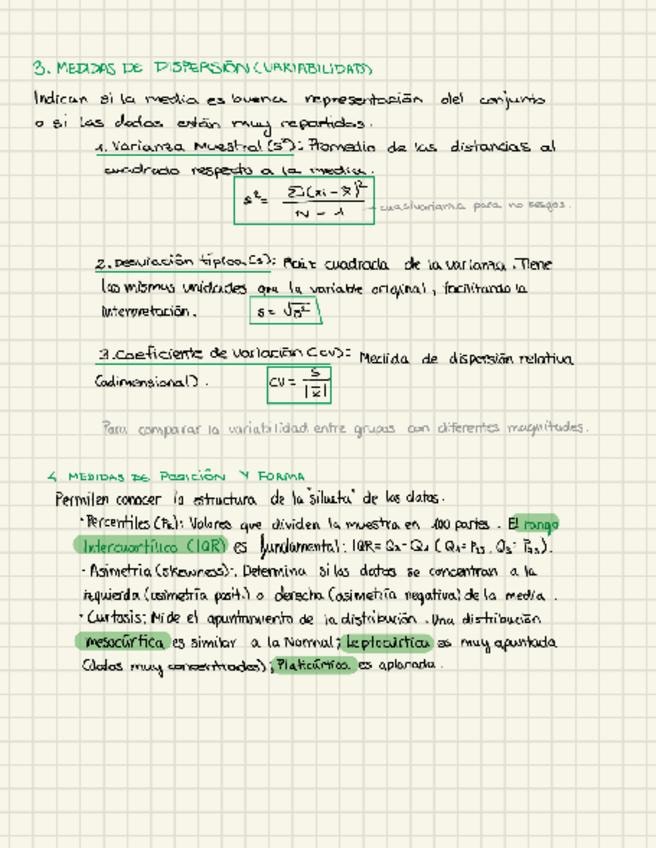 3. MEDIDAS DE DISPERSIÓN (VARIABILIDAD)
Indican si la media es buena representación del conjunto
o si los datos están muy repartidos.
1. Varianza Muestral (s²): Promedio de las distancias al
cuadrado respecto a la media.
s² = Σ(xi - x̄)² / N - 1
cuasivarianza para no sesgos.
2. Desviación típica (s): Raíz cuadrada de la varianza. Tiene
las mismas unidades que la variable original, facilitando la
interpretación.
s = √s²
3. Coeficiente de variación (CV): Medida de dispersión relativa
(adimensional).
CV = s / |x̄|
Para comparar la variabilidad entre grupos con diferentes magnitudes.
4. MEDIDAS DE POSICIÓN Y FORMA
Permiten conocer la estructura de la "silueta" de los datos.
· Percentiles (Pk): Valores que dividen la muestra en 100 partes. El rango
Intercuartílico (IQR) es fundamental: IQR = Q3 - Q1 (Q1 = P25, Q3 = P75).
· Asimetría (skewness): Determina si los datos se concentran a la
izquierda (asimetría posit.) o derecha (asimetría negativa) de la media.
· Curtosis: Mide el apuntamiento de la distribución. Una distribución
mesocúrtica es similar a la Normal; Leptocúrtica es muy apuntada
(datos muy concentrados); Platicúrtica es aplanada.